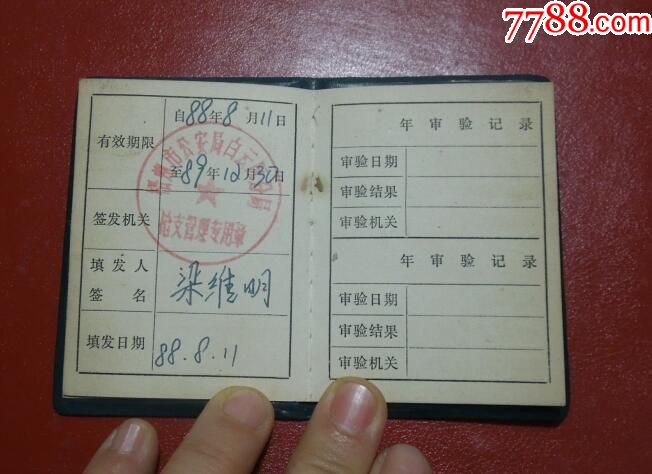 7788.com
自88年8月11日
有效期限
至89年12月30日
签发机关
枪支管理专用章
填发人
签名
梁维明
填发日期
88.8.11
年审验记录
审验日期
审验结果
审验机关
年审验记录
审验日期
审验结果
审验机关